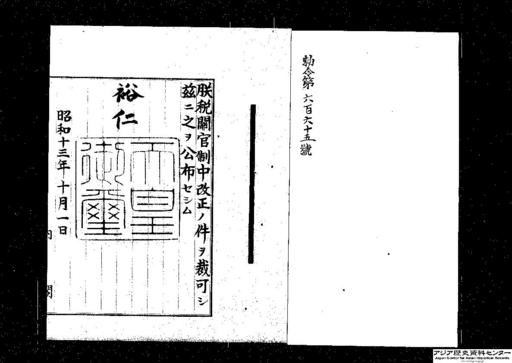 勅令第六百六十五號
朕税關官制中改正ノ件ヲ裁可シ
茲ニ之ヲ公布セシム
裕仁
天皇御璽
昭和十三年十月一日
内閣
アジア歴史資料センター
Japan Center for Asian Historical Records